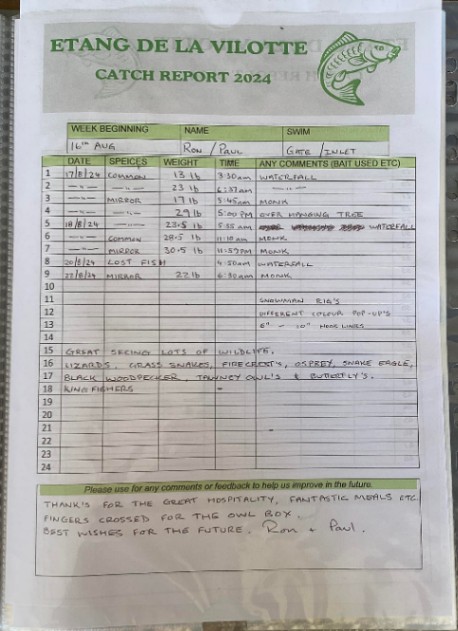 ETANG DE LA VILOTTE
CATCH REPORT 2024
WEEK BEGINNING NAME SWIM
16th AUG RON / PAUL GATE / INLET
DATE SPEICES WEIGHT TIME ANY COMMENTS (BAIT USED ETC)
1 17/8/24 COMMON 13 lb 3:30am WATERFALL
2 —"— —"— 23 lb 6:37am —"—
3 MIRROR 17 lb 5:45am MONK
4 —"— —"— 29 lb 5:00PM OVER HANGING TREE
5 18/8/24 —"— 23.5 lb 5:35am WATERFALL
6 COMMON 28.5 lb 11:10am MONK
7 MIRROR 30.5 lb 11:57PM MONK
8 20/8/24 LOST FISH 4:50am WATERFALL
9 22/8/24 MIRROR 22 lb 6:30am MONK
10
11 SNOWMAN RIG'S
12 DIFFERENT COLOUR POP-UP'S
13 6" - 10" HOOK LINES
14
15 GREAT SEEING LOTS OF WILDLIFE.
16 LIZARDS, GRASS SNAKES, FIRECRESTS, OSPREY, SNAKE EAGLE,
17 BLACK WOODPECKER, TAWNEY OWL'S & BUTTERFLY'S.
18 KINGFISHERS
19
20
21
22
23
24
Please use for any comments or feedback to help us improve in the future.
THANK'S FOR THE GREAT HOSPITALITY, FANTASTIC MEALS ETC.
FINGERS CROSSED FOR THE OWL BOX.
BEST WISHES FOR THE FUTURE. Ron + Paul.